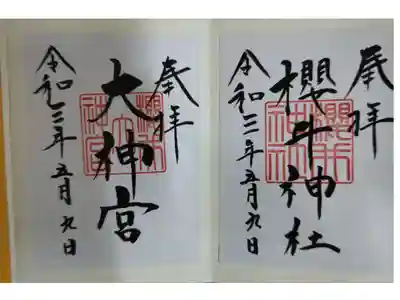 奉拝
櫻井神社
令和三年五月九日
奉拝
大神宮
令和三年五月九日